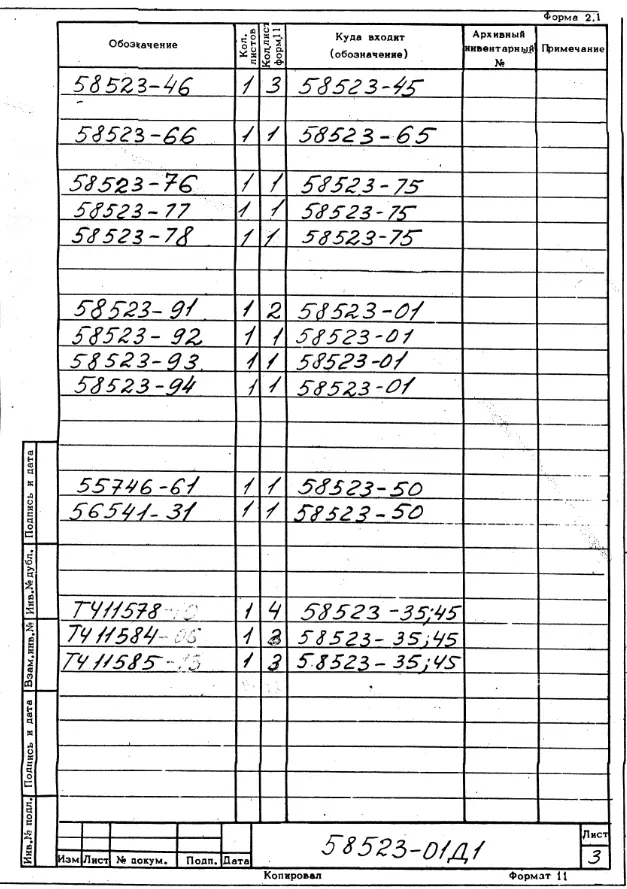 Форма 2.1
Обозначение Кол. листов Кол. лист форм. 11 Куда входит (обозначение) Архивный инвентарный № Примечание
58523-46 1 3 58523-45
58523-66 1 1 58523-65
58523-76 1 1 58523-75
58523-77 1 1 58523-75
58523-78 1 1 58523-75
58523-91 1 2 58523-01
58523-92 1 1 58523-01
58523-93 1 1 58523-01
58523-94 1 1 58523-01
55746-61 1 1 58523-50
56541-31 1 1 58523-50
ТУ11578 1 4 58523-35;45
ТУ11584 1 58523-35;45
ТУ11585 1 3 58523-35;45
Подпись и дата
Инв.№ дубл.
Взам.инв.№
Подпись и дата
Инв.№ подл.
Изм Лист № докум. Подп. Дата
58523-01Д1
Лист
3
Копировал Формат 11